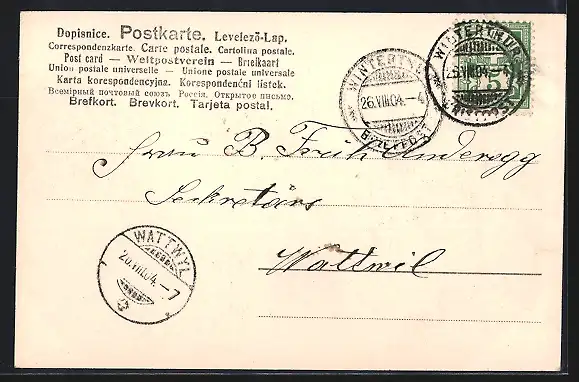 Dopisnice. Postkarte. Levelező-Lap.
Correspondenzkarte. Carte postale. Cartolina postale.
Post card — Weltpostverein — Briefkaart
Union postale universelle — Unione postale universale
Karta korespondencyjna. Korespondenční lístek.
Всемірный почтовый союзъ. Россія. Открытое письмо.
Brefkort. Brevkort. Tarjeta postal.
WINTERTHUR
26.VIII.04.-4
BRIEFPOST
WINTERTHUR
26.VIII.04.-4
5
Frau B. Früh Anderegg
Sekretärs
Wattwil
WATTWYL
26.VIII.04.-7